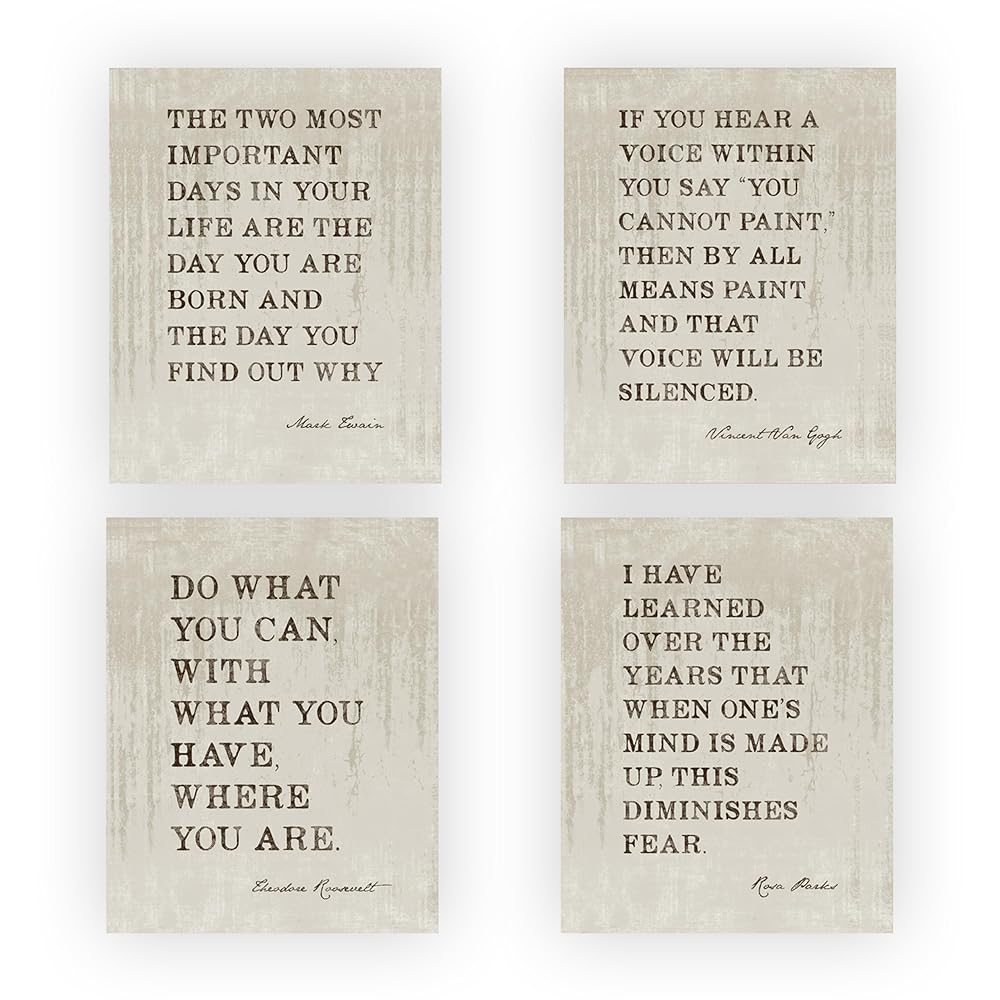 THE TWO MOST
IMPORTANT
DAYS IN YOUR
LIFE ARE THE
DAY YOU ARE
BORN AND
THE DAY YOU
FIND OUT WHY
Mark Twain
IF YOU HEAR A
VOICE WITHIN
YOU SAY “YOU
CANNOT PAINT,”
THEN BY ALL
MEANS PAINT
AND THAT
VOICE WILL BE
SILENCED.
Vincent Van Gogh
DO WHAT
YOU CAN,
WITH
WHAT YOU
HAVE,
WHERE
YOU ARE.
Theodore Roosevelt
I HAVE
LEARNED
OVER THE
YEARS THAT
WHEN ONE’S
MIND IS MADE
UP, THIS
DIMINISHES
FEAR.
Rosa Parks